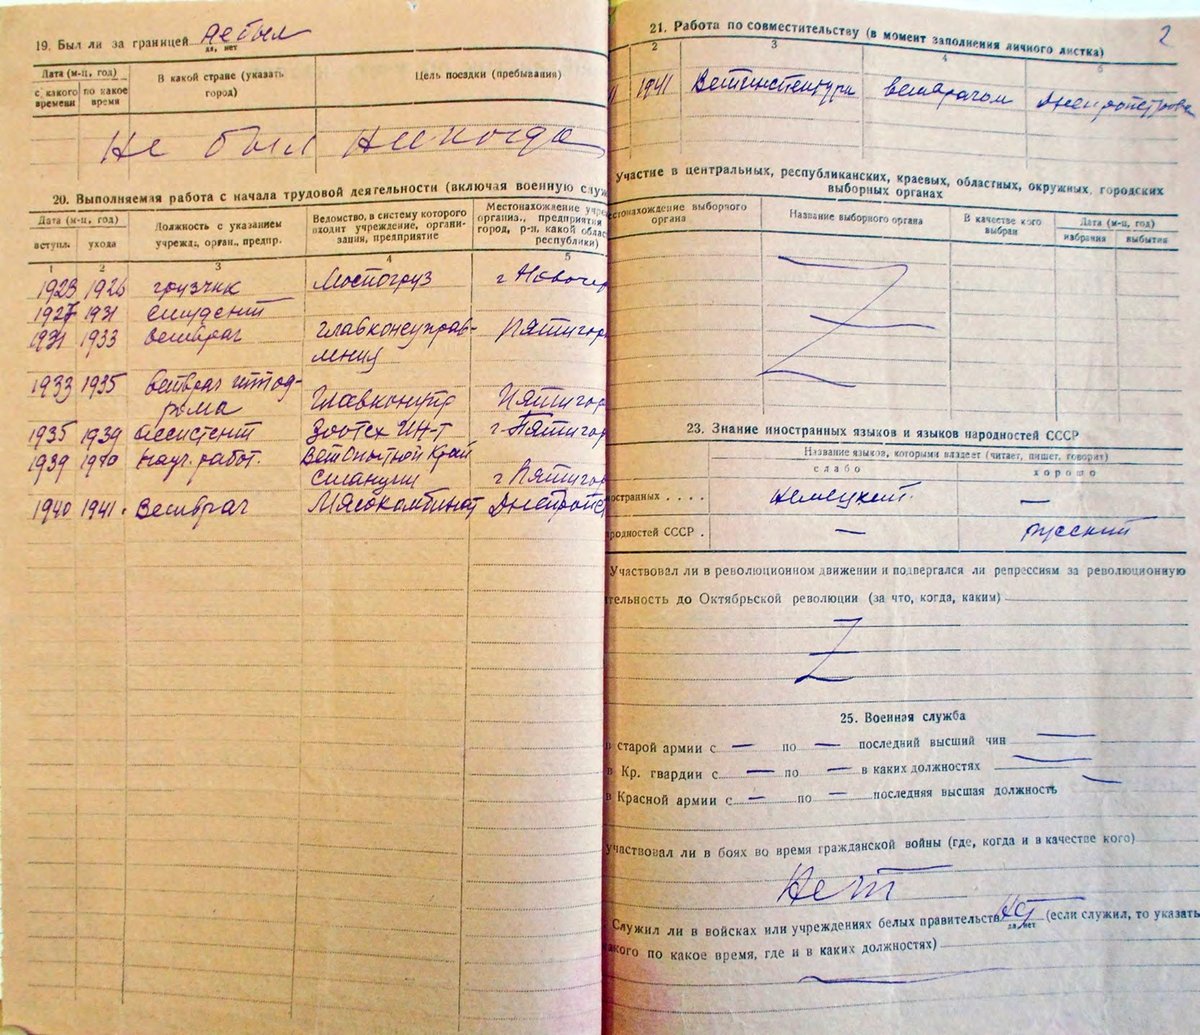 19. Был ли за границей не был
да, нет
Дата (м-ц, год)
с какого времени
по какое время
В какой стране (указать город)
Цель поездки (пребывания)
Не был никогда
20. Выполняемая работа с начала трудовой деятельности (включая военную служ
Дата (м-ц, год)
вступл.
ухода
Должность с указанием учрежд., орган., предпр.
Ведомство, в систему которого входит учреждение, органи-
зация, предприятие
Местонахождение учре
организ., предприятия
город, р-н, какой облас
республики)
1 2 3 4 5
1923 1926 грузчик Моспогруз г Новочер
1927 1931 студент
1931 1933 ветврач главконеуправ- Пятигор
ления
1933 1935 ветврач иппод-
рома Главконупр Пятигор
1935 1939 Ассистент Зоотех ИН-т г. Пятигор
1939 1940 Науч. работ. Ветопытной Край
станции г Пятигор
1940 1941. Ветврач Мясокомбинат Днепропе
2
21. Работа по совместительству (в момент заполнения личного листка)
2 3 4 5
1941 ветврачом Днепропетровс
Участие в центральных, республиканских, краевых, областных, окружных, городских
выборных органах
естонахождение выборного органа
Название выборного органа
В качестве кого выбран
Дата (м-ц, год)
избрания
выбытия
23. Знание иностранных языков и языков народностей СССР
Название языков, которыми владеет (читает, пишет, говорит)
слабо хорошо
ностранных . . . . Немецкий. —
родностей СССР . — русский
Участвовал ли в революционном движении и подвергался ли репрессиям за революционную
тельность до Октябрьской революции (за что, когда, каким)
25. Военная служба
в старой армии с — по — последний высший чин —
в Кр. гвардии с — по — в каких должностях —
в Красной армии с — по — последняя высшая должность —
участвовал ли в боях во время гражданской войны (где, когда и в качестве кого)
Нет
Служил ли в войсках или учреждениях белых правительств нет (если служил, то указать
да, нет
акого по какое время, где и в каких должностях)